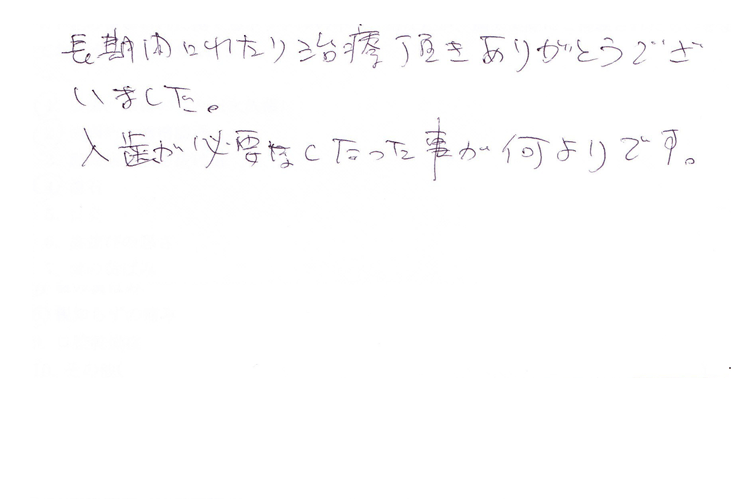 長期間にわたり治療頂きありがとうござ
いました。
入歯が必要なくなった事が何よりです。